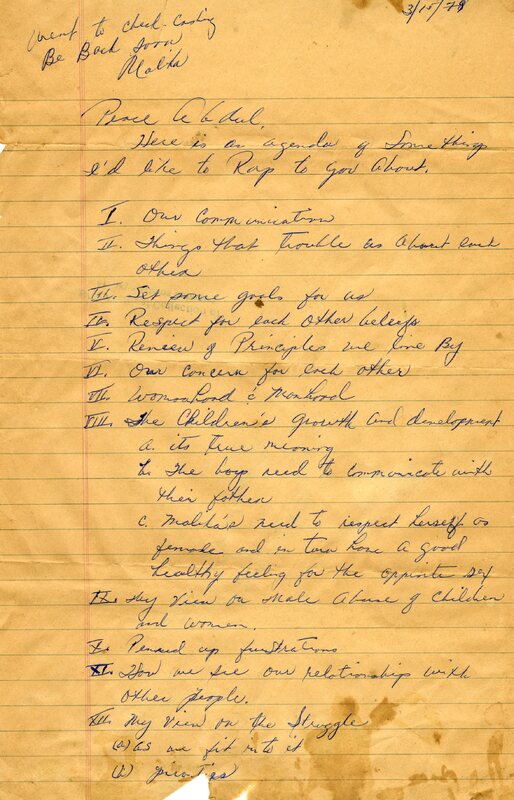 3/15/78
Went to check-cashing
Be Back soon
Malika
Peace Abdul,
Here is an agenda of Some things
I'd like to Rap to you About.
I. Our Communication
II. Things that trouble us about each
other
III. Set some goals for us
IV. Respect for each other beliefs
V. Review of Principles we live By
VI. Our concern for each other
VII. Womanhood & Manhood
VIII. The Children's growth and development
a. its true meaning
b. The boys need to communicate with
their father
c. Malika's need to respect herself as
female and in turn have a good
healthy feeling for the opposite sex
IX. My View on Male Abuse of children
and women.
X. Penned up frustrations
XI. How we see our relationship with
other people.
XII. My View on the Struggle
(a) as we fit into it
(b) priorities